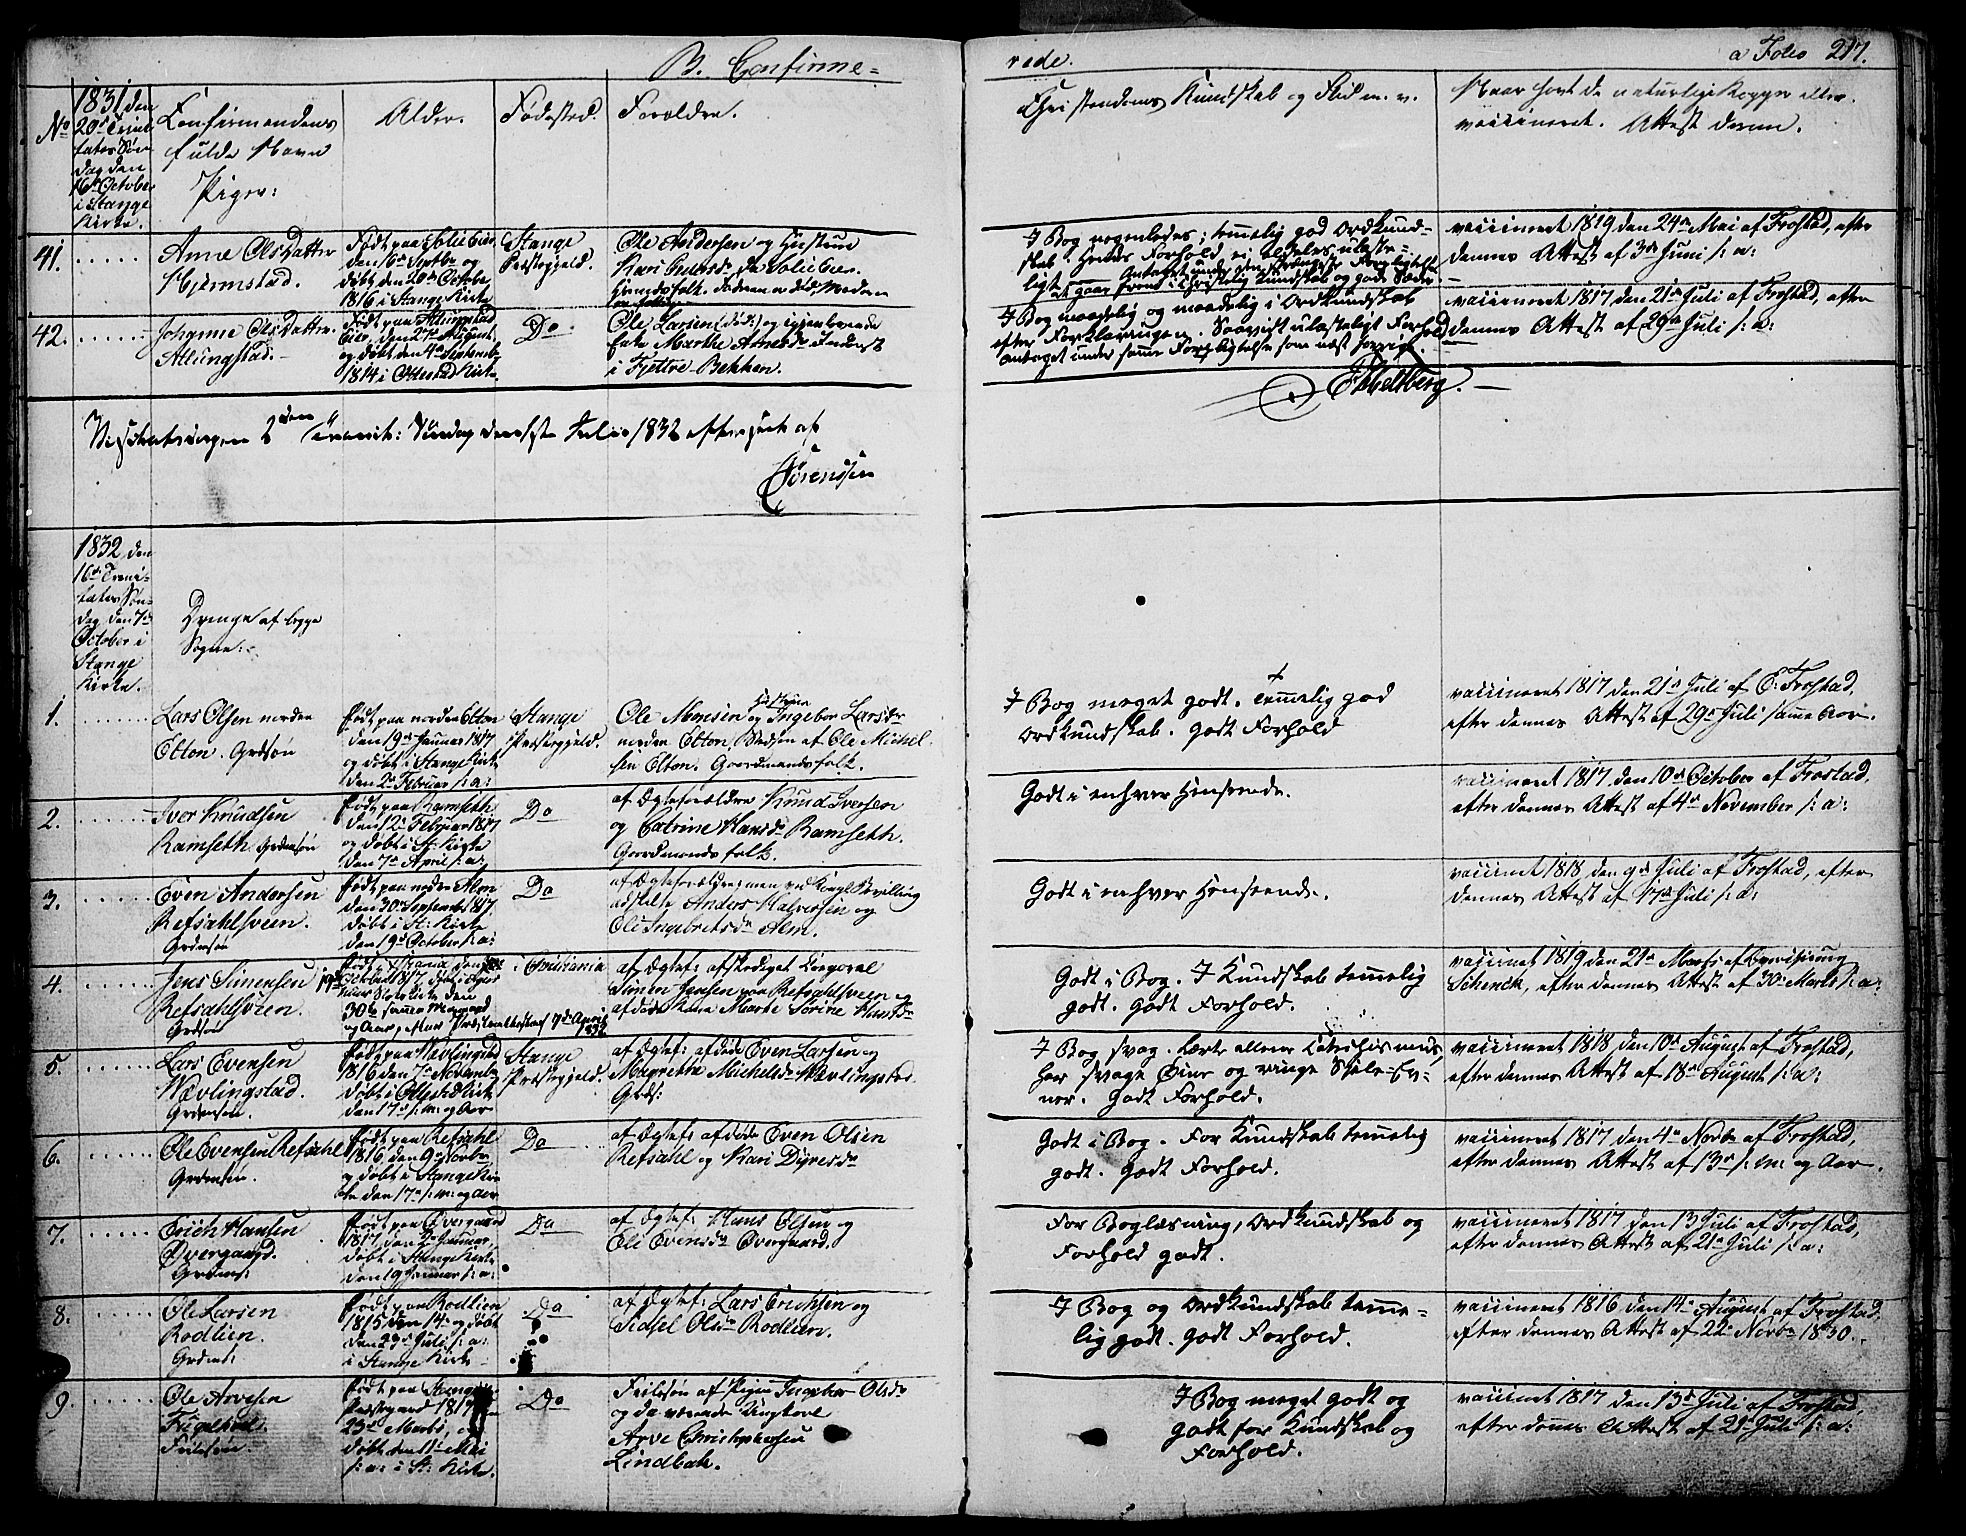 B. Confirme=
rede.
a Folio 217.
No
1831, den
20de Trini
tatis Søn
dag den
16de October
i Stange
Kirke.
Confirmandens
fulde Navn
Piger:
Alder.
Fødested.
Forældre.
Christendoms Kundskab og Flid m. v.
Naar havt de naturlige Kopper eller
vaccineret. Attest derom.
41.
Anne Olsdatter
Hjemstad.
den 6te Septbr og
døbt den 20de Octobr
1816 i Stange Kirke
Stange
Præstegjeld.
Ole Andersen og Hustrue
I Bog nogenledes; temmelig god Ordkund-
vaccineret 1819 den 24de Mai af Frostad, efter
dennes Attest af 3de Juni s: a:
42.
Johanne Olsdatter
Atlungstad.
og døbt den 4de Septembr
1814 i Ottestad Kirke
Do
Ole Larsen (død:) og igjenlevende
i Fjettre-Bekken.
I Bog maadelig og maadelig i Ordkundskab
efter Forklaringen. Saavidt ulasteligt Forhold
antaget under samme Forpligtelse som næst forrige.
vaccineret 1817 den 21de Juli af Frostad, efter
dennes Attest af 29de Juli s: a:
Sørenssen
1832, den
16de Trini-
tatis Søn-
dag den 7de
October i
Stange
Kirke.
Drenge af begge
Sogne:
1.
Lars Olsen nordre
Etton. Grdsøn
Født paa nordre Etton
den 19de Januar 1817
og døbt i Stange Kirke
den 2de Februar s: a:
Stange
Præstegjeld.
Hustrue
Ole Monsen og Ingebor Larsdr
nordre Etton, Stedsøn af Ole Michel-
sen Etton. Gaardmandsfolk.
I Bog meget godt. temmelig god
Ordkundskab. Godt Forhold
vaccineret 1817 den 21de Juli af E: Frostad,
efter dennes Attest af 29de Juli samme Aar.
2.
Iver Knudsen
Ramseth. Grdmsøn
Født paa Ramseth
den 12te Februar 1817
og døbt i St: Kirke
den 7de April s: a:
Do
af Ægteforældre Knud Iversen
og Catrine Hansdr Ramseth.
Gaardmandsfolk.
Godt i enhver Henseende.
vaccineret 1817 den 10de October af Frostad,
efter dennes Attest af 4de November s: a:
3.
Even Andersen
Refsahlsveen.
Grdmsøn
Født paa nedre Alm
den 30. September 1817.
døbt i St: Kirke
den 19de October s: a:
Do
af Ægteforældre; men ved Kongl Bevilling
adskilte Anders Halversen og
Oli Ingebretsdr Alm.
Godt i enhver Henseende.
vaccineret 1818 den 9de Juli af Frostad, efter
dennes Attest af 17de Juli s: a:
4.
Jens Simensen
Refsahlsveen.
Grdsøn
30te samme Maaned
og Aar, efter Præsteattest af 7de April
1832
i Christiania
af Ægtef: afskediget Corporal
Simen Jensen paa Refsahlsveen og
afdøde Kone Marte Sørine Hansdr
Godt i Bog. I Kundskab temmelig
godt. Godt Forhold.
vaccineret 1819 den 21de Marts af
Schenck, efter dennes Attest af 30te Marts s: a:
5.
Lars Evensen
Wævlingstad.
Grdmsøn.
Født paa Wævlingstad
1816 den 7de Novembr
døbt i Ottestad Kirke
den 17de s: m: og Aar
Stange
Præstegjeld.
af Ægtef: afdøde Even Larsen og
Magrethe Michelsdr Wævlingstad.
Grds:
I Bog svag. Lærte allene Catechismus,
har svage Øine og ringe Siæle-Ev-
ner. Godt Forhold.
vaccineret 1818 den 10de August af Frostad,
efter dennes Attest af 18de August s: a:
6.
Ole Evensen Refsahl
Grdmsøn.
Født paa Refsahl
1816 den 9de Novbr
og døbt i Stange Kir
ke den 17de s: m: og Aar
Do
af Ægtef: afdøde Even Olsen
Refsahl og Kari Dyresdr
Godt i Bog. For Kundskab temmelig
godt. Godt Forhold.
vaccineret 1817 den 4de Novbr af Frostad,
efter dennes Attest af 13de s: m: og Aar.
7.
Erich Hansen
Øvergaard.
Grdms:
Født paa Øvergaard
1817, den 2den Januar,
døbt i Stange Kirke
den 19 Januar s: a:
Do
af Ægtef: Hans Olsen og
Eli Evensdr Øvergaard.
For Boglæsning, Ordkundskab og
Forhold godt.
vaccineret 1817 den 13 Juli af Frostad,
efter dennes Attest af 21de Juli s: a:
8.
Ole Larsen
Rodlien.
Grdms:
Født paa Rodlien
1815 den 14de og døbt
den 23de Juli s: a:
i Stange Kirke
Do
af Ægtef: Lars Erichsen og
Sidsel Olsdr Rodlien.
I Bog og Ordkundskab temme-
lig godt. Godt Forhold.
vaccineret 1816 den 14de August af Frostad,
efter dennes Attest af 22de Novbr 1830.
9.
Ole Arvesen
Friesøn
Født paa Stange
Præstegaard 1817 den
23de Marts, og
døbt den 1ste Mai
s: a: i St: Kirke.
Do
Friesøn af Pigen Ingebor Olsdr
og da værende Ungkarl
Arve Christophersen
Lindbak.
I Bog meget godt og
godt for Kundskab og
Forhold.
vaccineret 1817 den 13de Juli af Frostad,
efter dennes Attest af 21de Juli s: a: